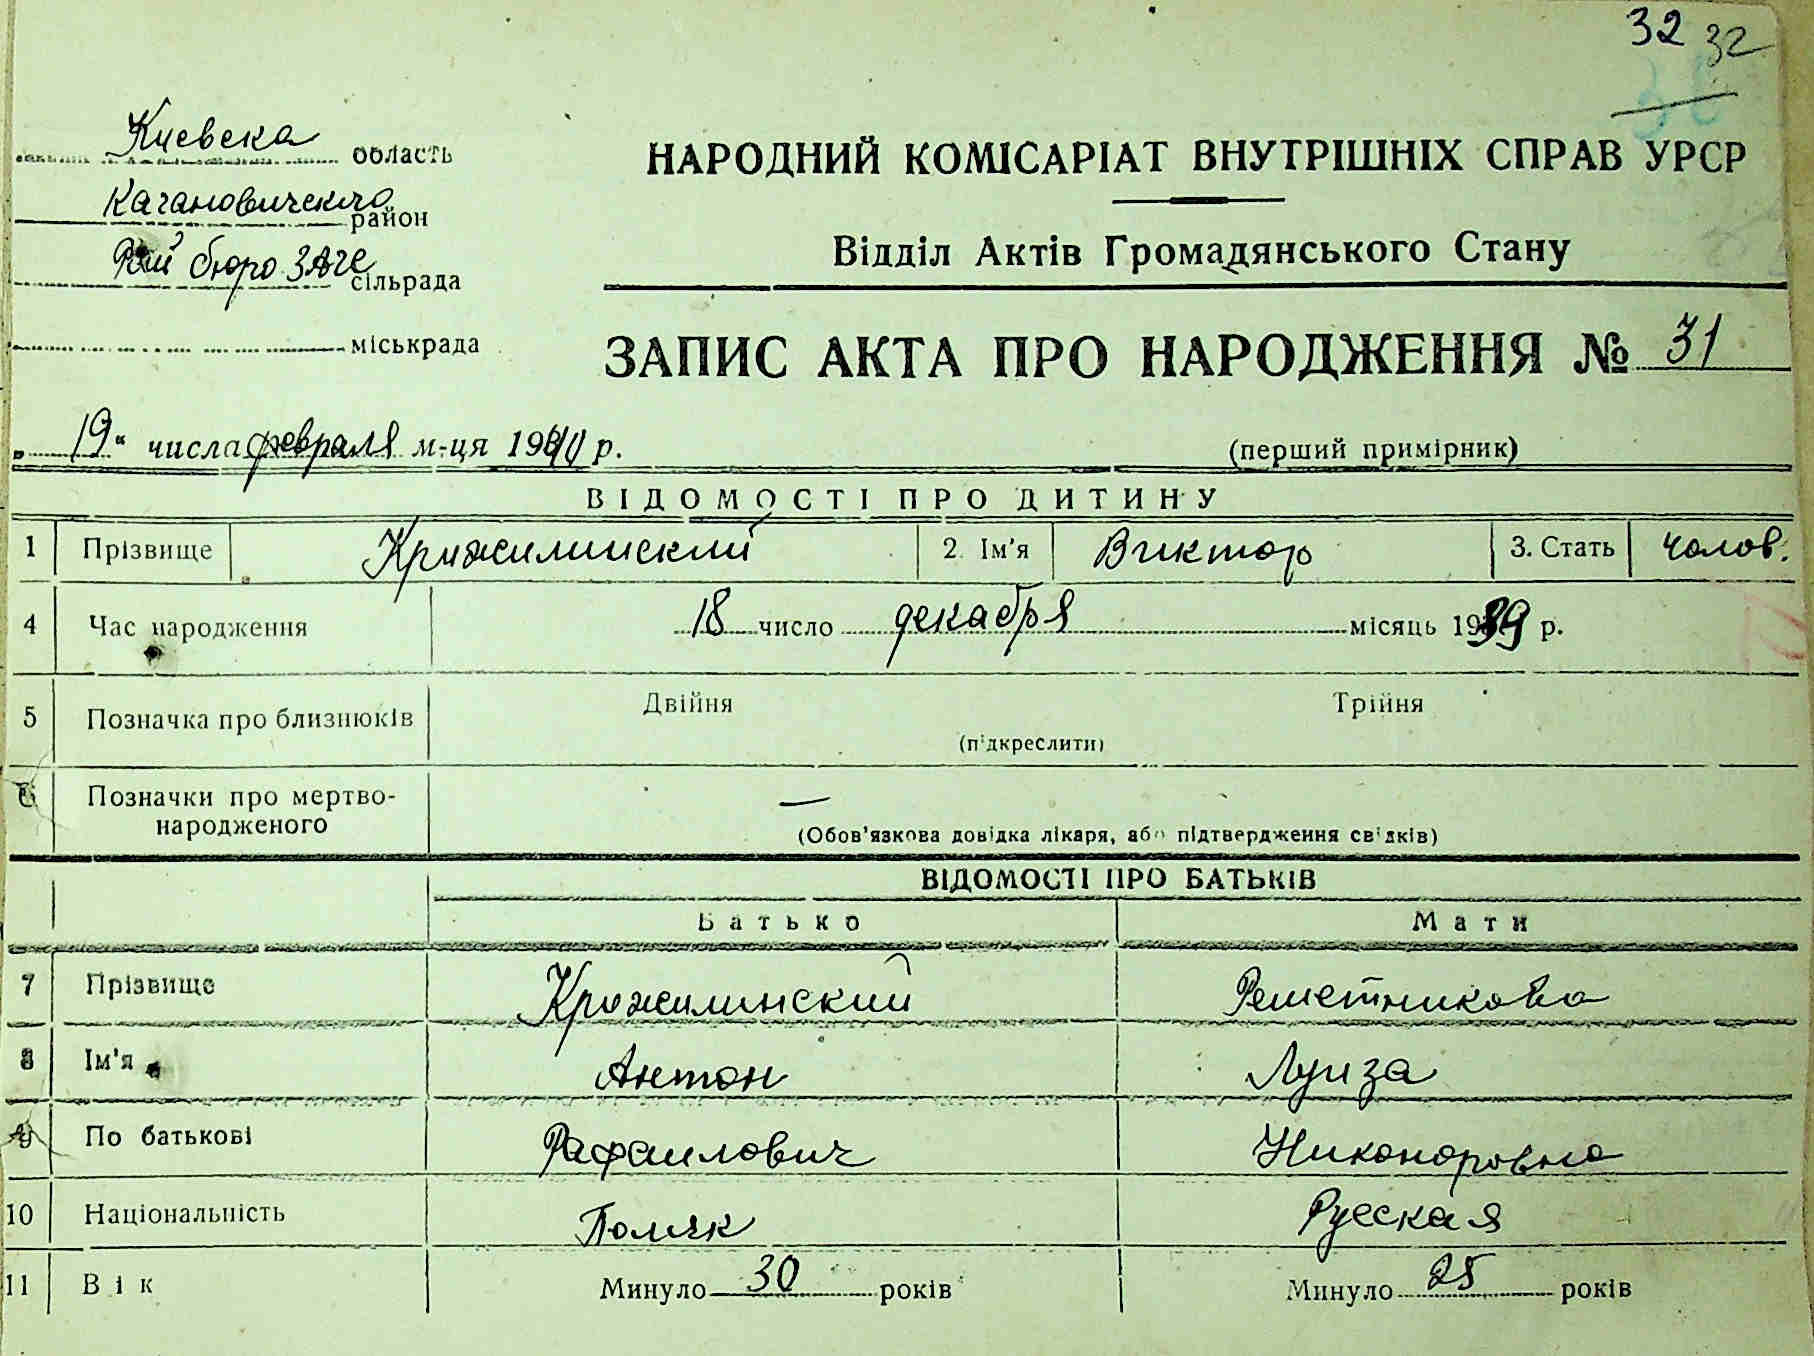 32 32
Киевска область
Кагановический район
Рай бюро ЗАГС сільрада
міськрада
НАРОДНИЙ КОМІСАРІАТ ВНУТРІШНІХ СПРАВ УРСР
Відділ Актів Громадянського Стану
ЗАПИС АКТА ПРО НАРОДЖЕННЯ № 31
„19“ числа февраля м-ця 1940 р. (перший примірник)
ВІДОМОСТІ ПРО ДИТИНУ
1 Прізвище Крижилинский 2. Ім'я Виктор 3. Стать чолов.
4 Час народження 18 число декабря місяць 1939 р.
5 Позначка про близнюків Двійня Трійня
(підкреслити)
6 Позначки про мертво-
народженого —
(Обов'язкова довідка лікаря, або підтвердження свідків)
ВІДОМОСТІ ПРО БАТЬКІВ
Батько Мати
7 Прізвище Крижилинский Решетникова
8 Ім'я Антон Луиза
9 По батькові Рафаилович Никоноровна
10 Національність Поляк Русская
11 Вік Минуло 30 років Минуло 25 років